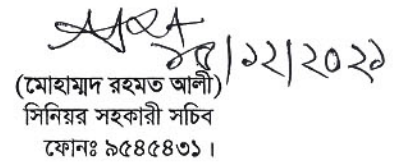 ১৫/১২/২০২১
(মোহাম্মদ রহমত আলী)
সিনিয়র সহকারী সচিব
ফোনঃ ৯৫৪৫৪৩১।